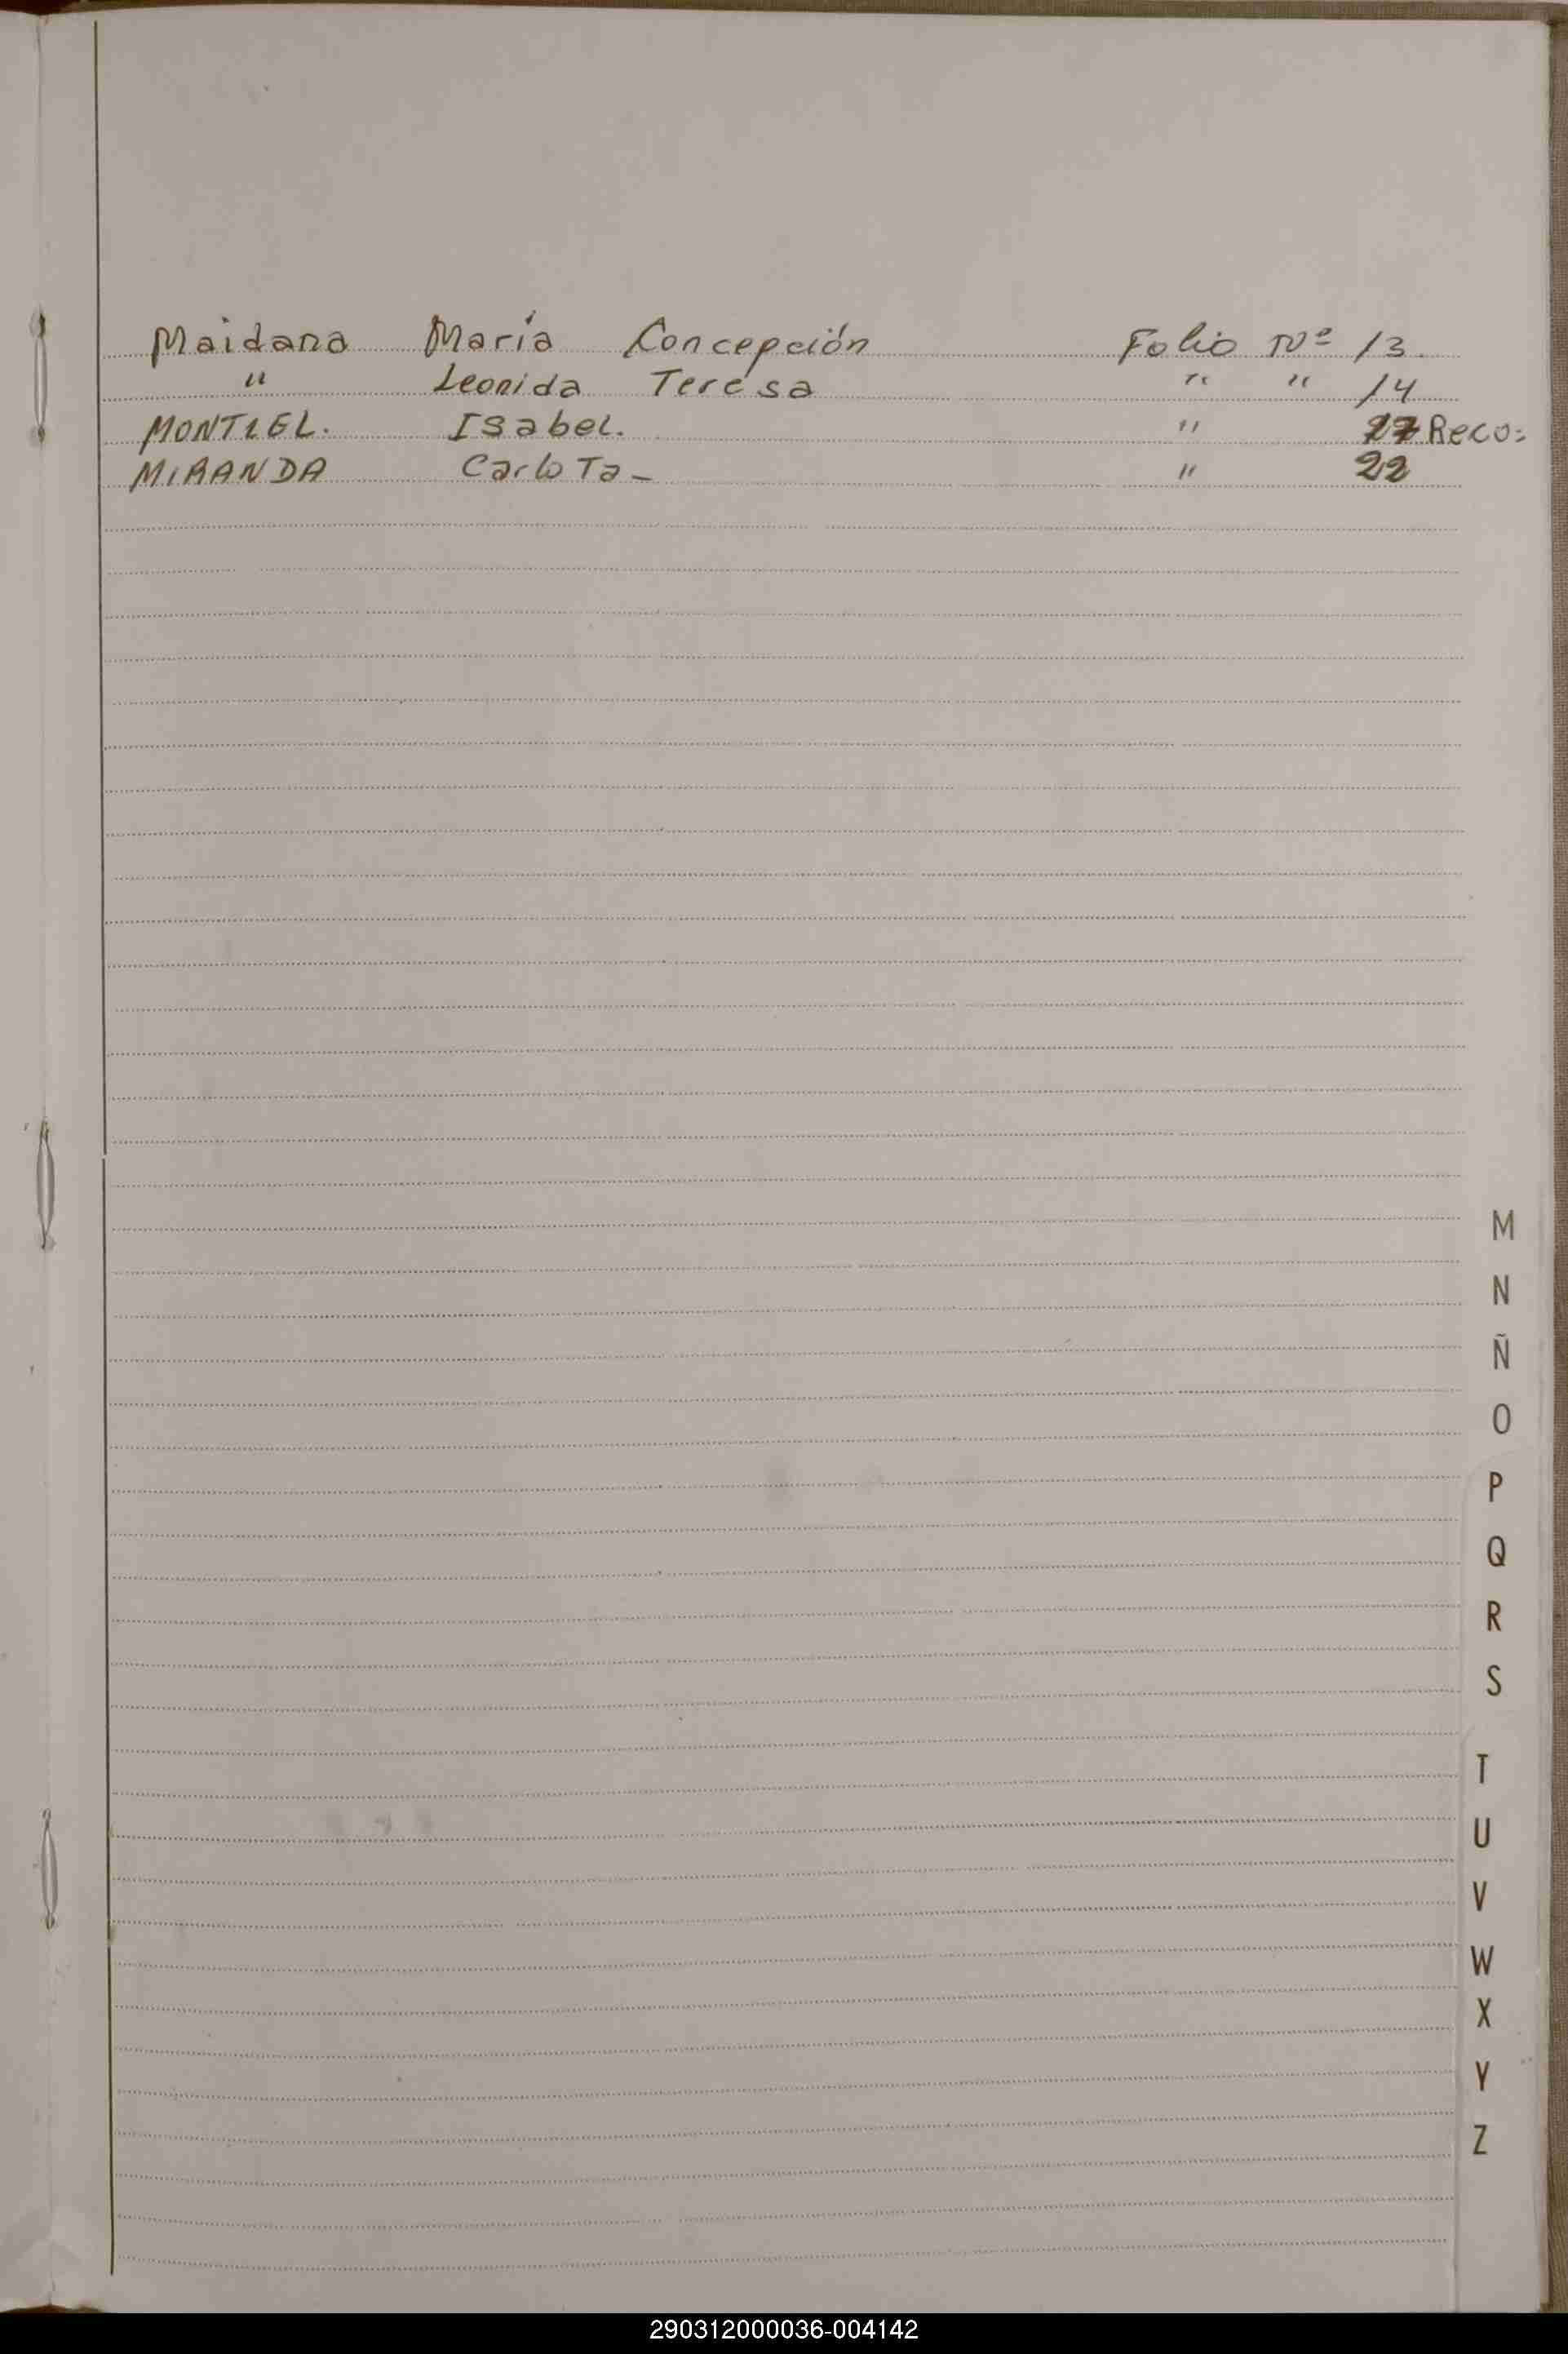 Maidana María Concepción Folio Nº 13.
" Leonida Teresa " " 14
MONTIEL. Isabel. " Reco:
MIRANDA CarloTa - " 22
M
N
Ñ
O
P
Q
R
S
T
U
V
W
X
Y
Z
290312000036-004142